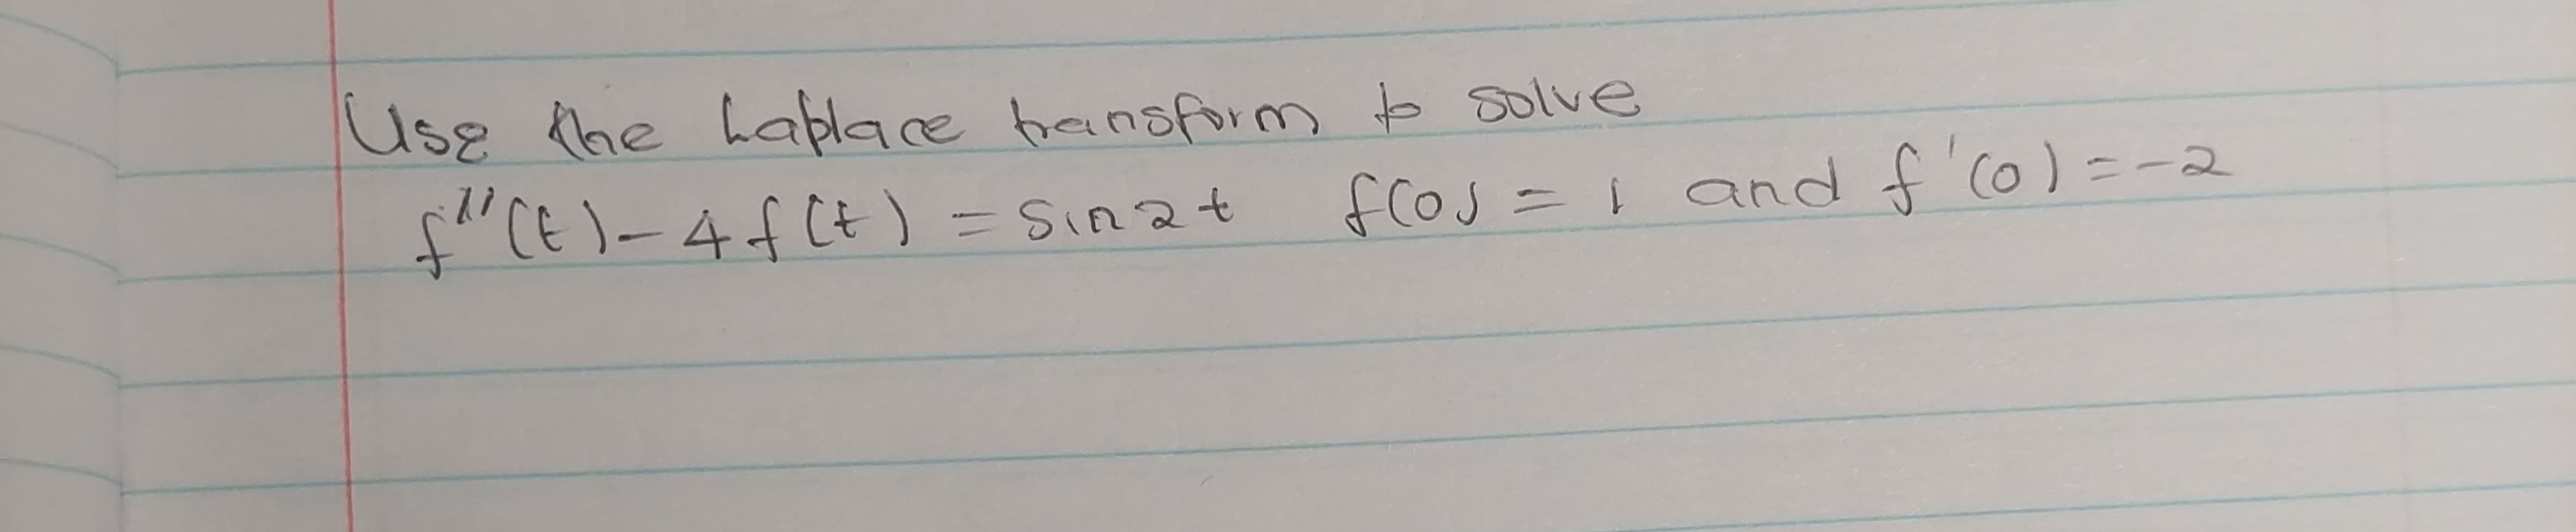 Use the Laplace transform to solve
f''(t) - 4f(t) = sin2t f(0) = 1 and f'(0) = -2